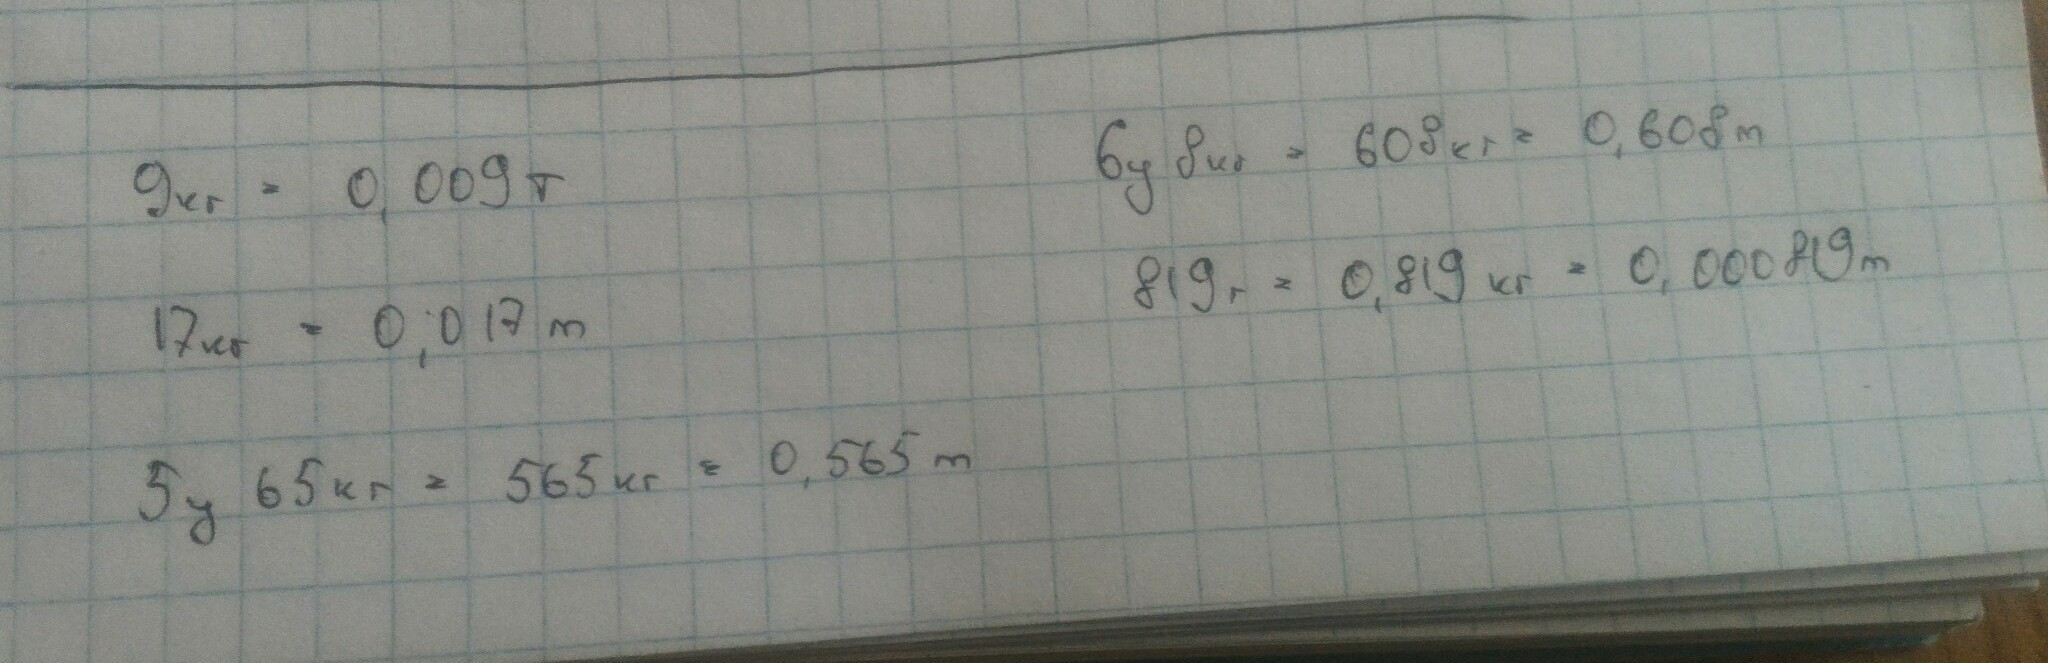 9кг = 0,009т
17кг = 0,017т
5ц 65кг = 565кг = 0,565т
6ц 8кг = 608кг = 0,608т
819г = 0,819кг = 0,000819т